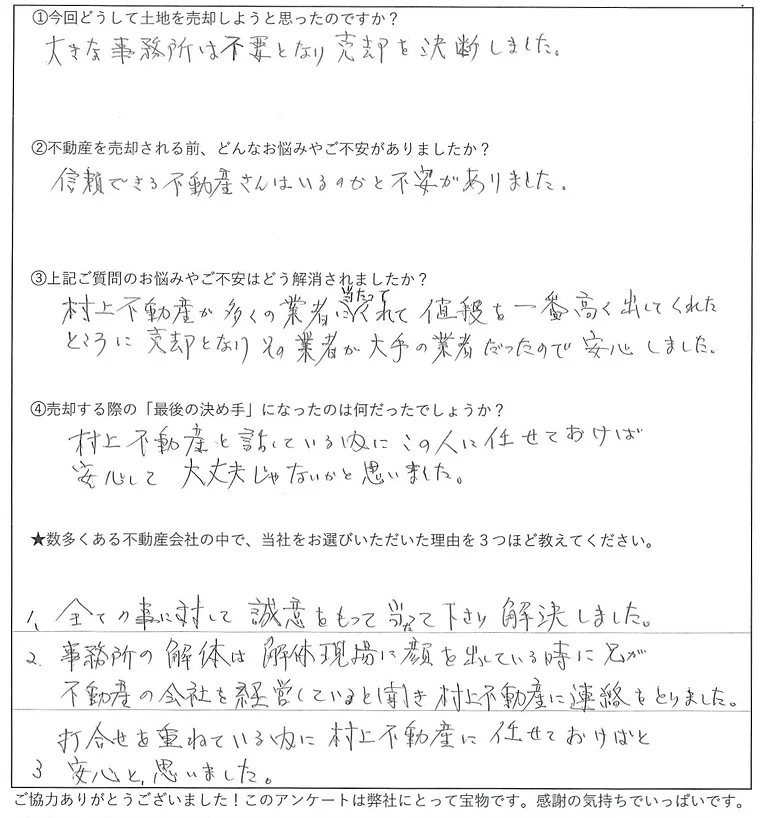 ①今回どうして土地を売却しようと思ったのですか？
大きな事務所は不要となり売却を決断しました。
②不動産を売却される前、どんなお悩みやご不安がありましたか？
信頼できる不動産さんはいるのかと不安がありました。
③上記ご質問のお悩みやご不安はどう解消されましたか？
当たって
村上不動産が多くの業者にくれて値段を一番高く出してくれた
ところに売却となりその業者が大手の業者だったので安心しました。
④売却する際の「最後の決め手」になったのは何だったでしょうか？
村上不動産と話している内にこの人に任せておけば
安心して大丈夫じゃないかと思いました。
★数多くある不動産会社の中で、当社をお選びいただいた理由を３つほど教えてください。
1、全ての事に対して誠意をもって当たって下さり解決しました。
2. 事務所の解体は解体現場に顔を出している時に兄が
不動産の会社を経営していると聞き村上不動産に連絡をとりました。
打合せを重ねている内に村上不動産に任せておけばと
3 安心と、思いました。
ご協力ありがとうございました！このアンケートは弊社にとって宝物です。感謝の気持ちでいっぱいです。